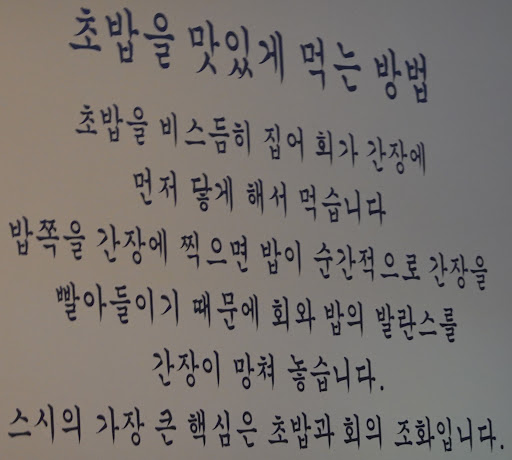 초밥을 맛있게 먹는 방법
초밥을 비스듬히 집어 회가 간장에
먼저 닿게 해서 먹습니다
밥쪽을 간장에 찍으면 밥이 순간적으로 간장을
빨아들이기 때문에 회와 밥의 발란스를
간장이 망쳐 놓습니다.
스시의 가장 큰 핵심은 초밥과 회의 조화입니다.